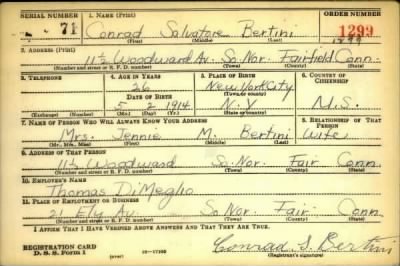 SERIAL NUMBER 1. NAME (Print) ORDER NUMBER
71 Conrad Salvatore Bertini 1299
(First) (Middle) (Last)
2. ADDRESS (Print)
11½ Woodward Av. So. Nor. Fairfield Conn.
(Number and street or R. F. D. number) (Town) (County) (State)
3. TELEPHONE 4. AGE IN YEARS 5. PLACE OF BIRTH 6. COUNTRY OF CITIZENSHIP
26 New York City
DATE OF BIRTH (Town or county)
5 2 1914 N.Y. U.S.
(Exchange) (Number) (Mo.) (Day) (Yr.) (State or country)
7. NAME OF PERSON WHO WILL ALWAYS KNOW YOUR ADDRESS 8. RELATIONSHIP OF THAT PERSON
Mrs. Jennie M. Bertini Wife
(Mr., Mrs., Miss) (First) (Middle) (Last)
9. ADDRESS OF THAT PERSON
11½ Woodward So. Nor. Fair Conn.
(Number and street or R. F. D. number) (Town) (County) (State)
10. EMPLOYER'S NAME
Thomas DiMeglio
11. PLACE OF EMPLOYMENT OR BUSINESS
Av. So. Nor. Fair Conn.
(Number and street or R. F. D. number) (Town) (County) (State)
I AFFIRM THAT I HAVE VERIFIED ABOVE ANSWERS AND THAT THEY ARE TRUE.
REGISTRATION CARD
D. S. S. Form 1 (over) Conrad S. Bertini
(Registrant's signature)